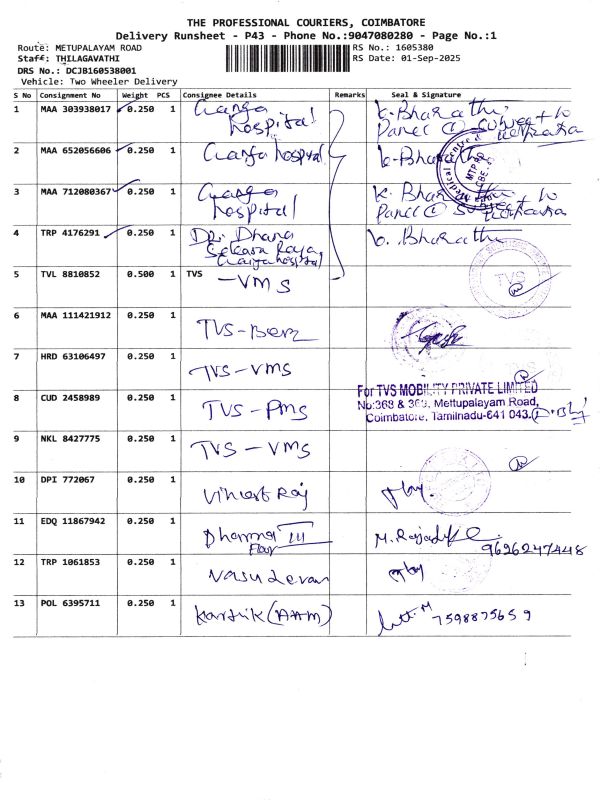 THE PROFESSIONAL COURIERS, COIMBATORE
Delivery Runsheet - P43 - Phone No.:9047080280 - Page No.:1
Route: METUPALAYAM ROAD RS No.: 1605380
Staff: THILAGAVATHI RS Date: 01-Sep-2025
DRS No.: DCJB160538001
Vehicle: Two Wheeler Delivery
S No Consignment No Weight PCS Consignee Details Remarks Seal & Signature
1 MAA 303938017 0.250 1 Ganga hospital K. Bharathi
Panel @ subject to
2 MAA 652056606 0.250 1 Ganga hospital K. Bharathi
3 MAA 712080367 0.250 1 Ganga hospital K. Bharathi
Panel @ to
4 TRP 4176291 0.250 1 Dr. Dhana Sekara Raja Ganga hospital K. Bharathi
5 TVL 8810852 0.500 1 TVS - VMS TVS
6 MAA 111421912 0.250 1 TVS-Benz
7 HRD 63106497 0.250 1 TVS-VMS
8 CUD 2458989 0.250 1 TVS-PMS
For TVS MOBILITY PRIVATE LIMITED
No:368 & 369, Mettupalayam Road,
Coimbatore, Tamilnadu-641 043.
9 NKL 8427775 0.250 1 TVS-VMS
10 DPI 772067 0.250 1 Vincent Raj
11 EDQ 11867942 0.250 1 Dharma III Floor 9626247448
12 TRP 1061853 0.250 1 Vasudevan
13 POL 6395711 0.250 1 Karthik (AAM) 7598875659